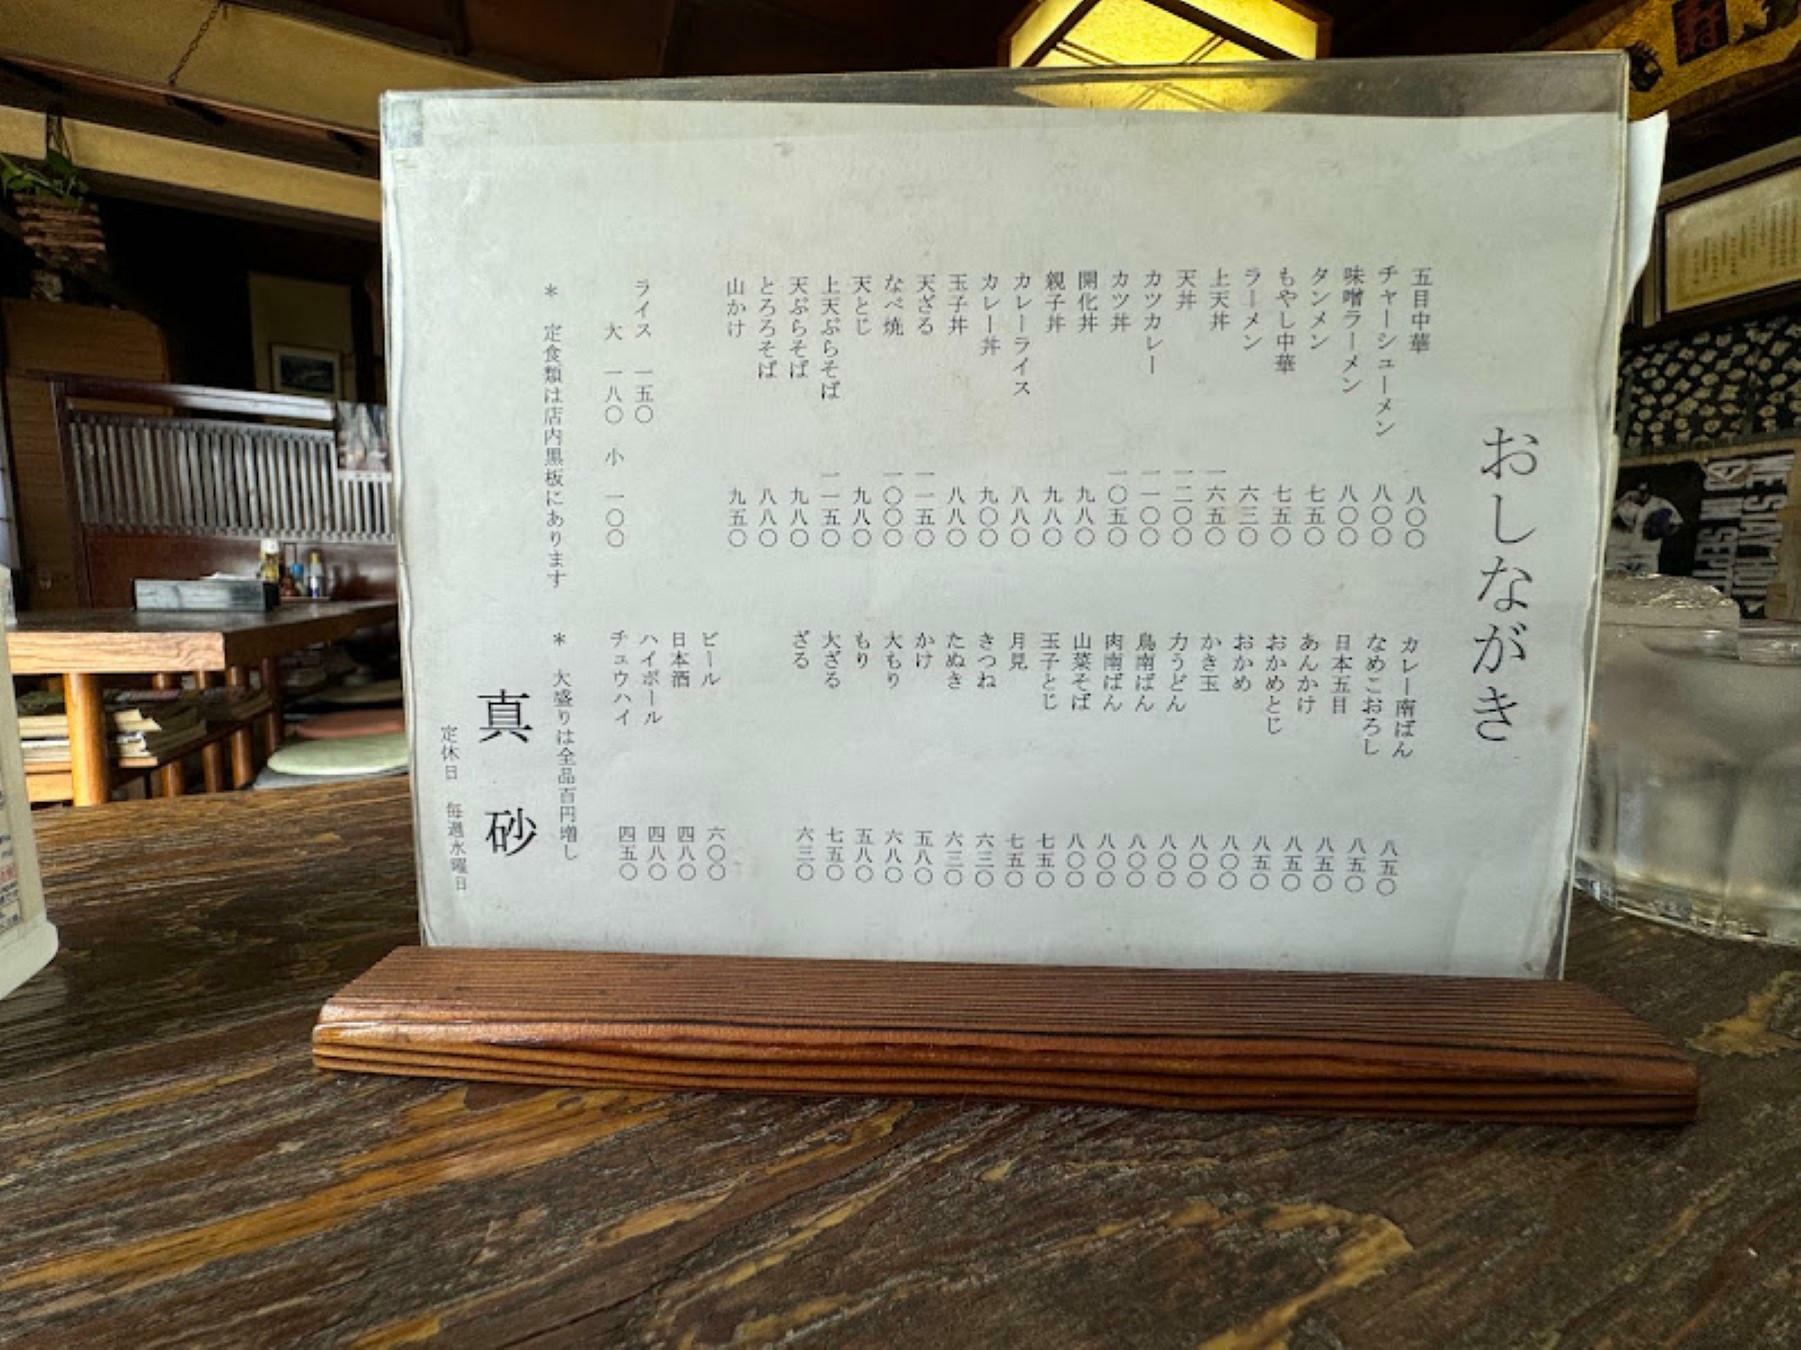 おしながき
五目中華　八〇〇
チャーシューメン　八〇〇
味噌ラーメン　八〇〇
タンメン　七五〇
もやし中華　七五〇
ラーメン　六三〇
上天丼　一六五〇
天丼　一二〇〇
カツカレー　一一〇〇
カツ丼　一〇五〇
開化丼　九八〇
親子丼　九八〇
カレーライス　八八〇
カレー丼　九〇〇
玉子丼　八八〇
天ざる　一一五〇
なべ焼　一〇〇〇
天とじ　九八〇
上天ぷらそば　一一五〇
天ぷらそば　九八〇
とろろそば　八八〇
山かけ　九五〇
ライス　一五〇
大　一八〇　小　一〇〇
カレー南ばん　八五〇
なめこおろし　八五〇
日本五目　八五〇
あんかけ　八五〇
おかめとじ　八五〇
おかめ　八〇〇
かき玉　八〇〇
力うどん　八〇〇
鳥南ばん　八〇〇
肉南ばん　八〇〇
山菜そば　八〇〇
玉子とじ　七五〇
月見　七五〇
きつね　六三〇
たぬき　六三〇
かけ　五八〇
大もり　六八〇
もり　五八〇
大ざる　七五〇
ざる　六三〇
ビール　六〇〇
日本酒　四八〇
ハイボール　四八〇
チュウハイ　四五〇
＊　定食類は店内黒板にあります
＊　大盛りは全品百円増し
真砂
定休日　毎週水曜日